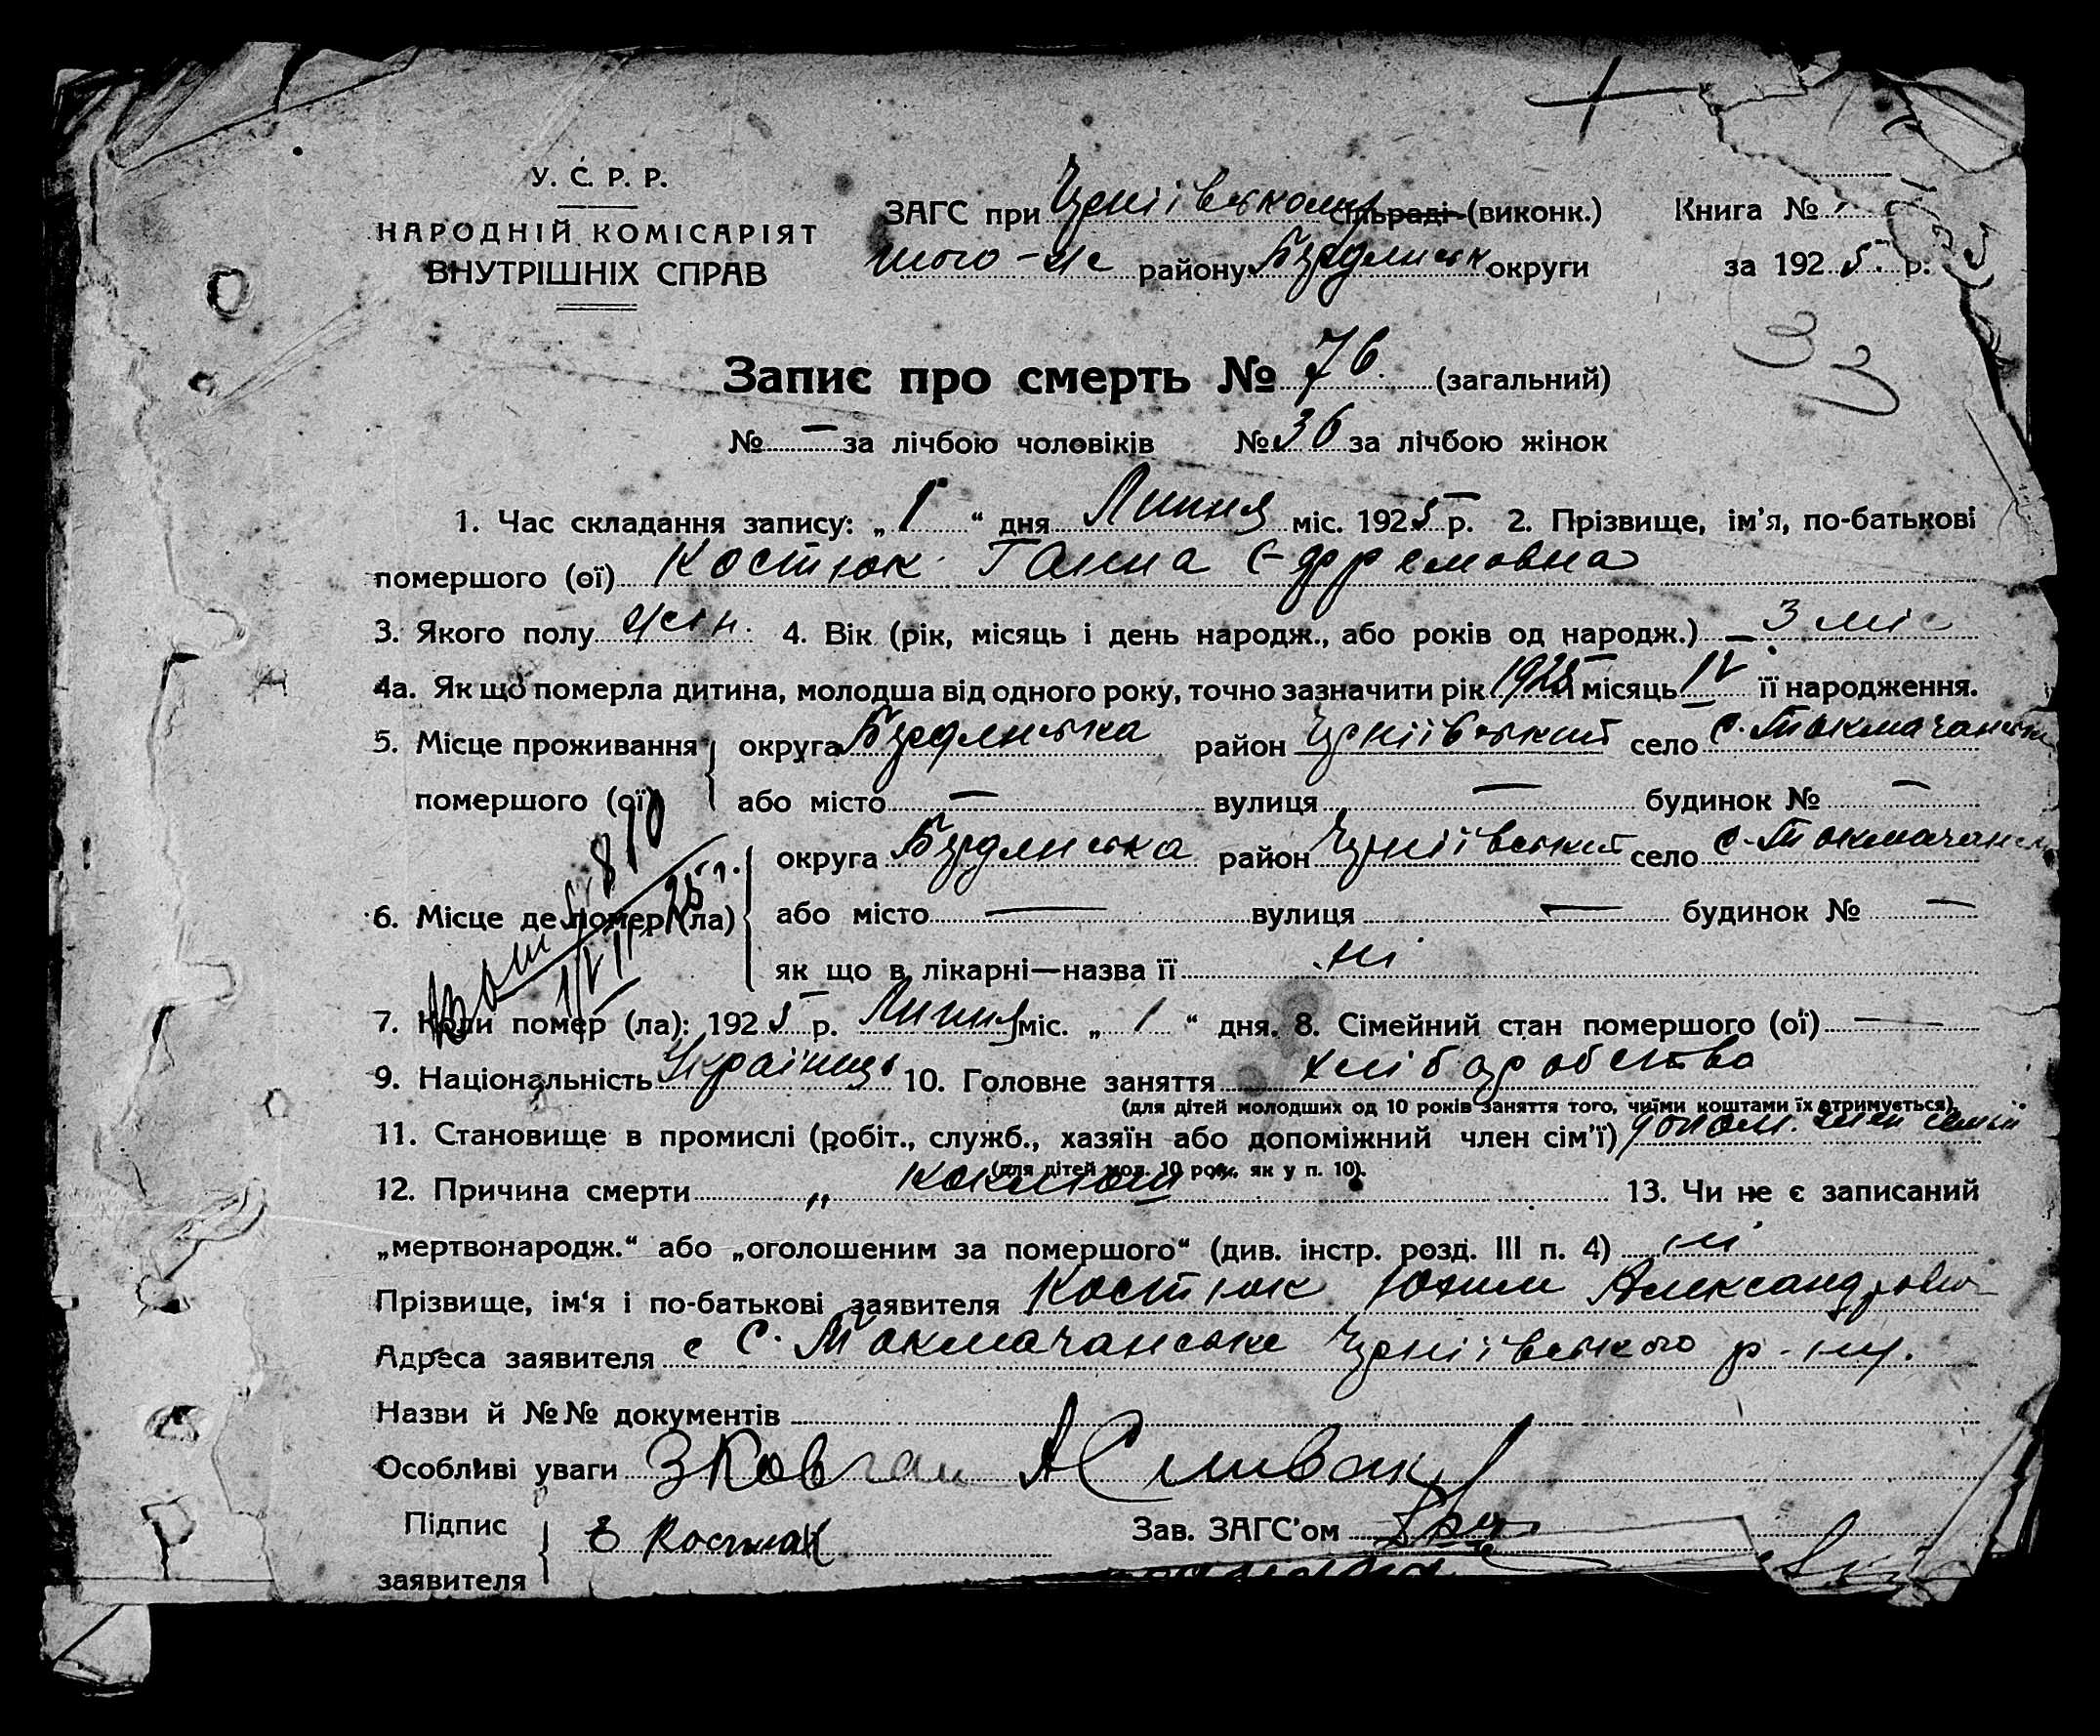 У. С. Р. Р.
НАРОДНІЙ КОМІСАРІЯТ
ВНУТРІШНІХ СПРАВ
ЗАГС при Черніівському сільраді (виконк.)
того-же району Бердянськ округи
Книга №
за 1925 р.
33
Запис про смерть № 76. (загальний)
№ — за лічбою чоловіків № 36 за лічбою жінок
1. Час складання запису: „ 1 “ дня Липня міс. 1925 р. 2. Прізвище, ім'я, по-батькові
помершого (ої) Костюк Ганна Єфремовна
3. Якого полу жін. 4. Вік (рік, місяць і день народж., або років од народж.) — 3 міс
4а. Як що померла дитина, молодша від одного року, точно зазначити рік 1925 місяць IV її народження.
5. Місце проживання округа Бердянська район Черніівський село с. Токмачанське
помершого (ої) або місто — вулиця — будинок № —
округа Бердянська район Черніівський село с. Токмачанськ
6. Місце де помер (ла) або місто — вулиця — будинок № —
як що в лікарні—назва її ні
7. Коли помер (ла): 1925 р. Липня міс. „ 1 “ дня. 8. Сімейний стан помершого (ої) —
9. Національність Українць 10. Головне заняття хліборобство
(для дітей молодших од 10 років заняття того, чиїми коштами їх отримується)
11. Становище в промислі (робіт., служб., хазяїн або допоміжний член сім'ї) допом. член семьи
(для дітей мол. 10 рок. як у п. 10).
12. Причина смерти „ Коклюш 13. Чи не є записаний
„мертвонародж.“ або „оголошеним за помершого“ (див. інстр. розд. III п. 4) ні
Прізвище, ім'я і по-батькові заявителя Костюк Юхим Александров
Адреса заявителя с С. Токмачанське Черніівського р-ну.
Назви й №№ документів
Особливі уваги
Підпис
заявителя Е Костюк
Зав. ЗАГС'ом